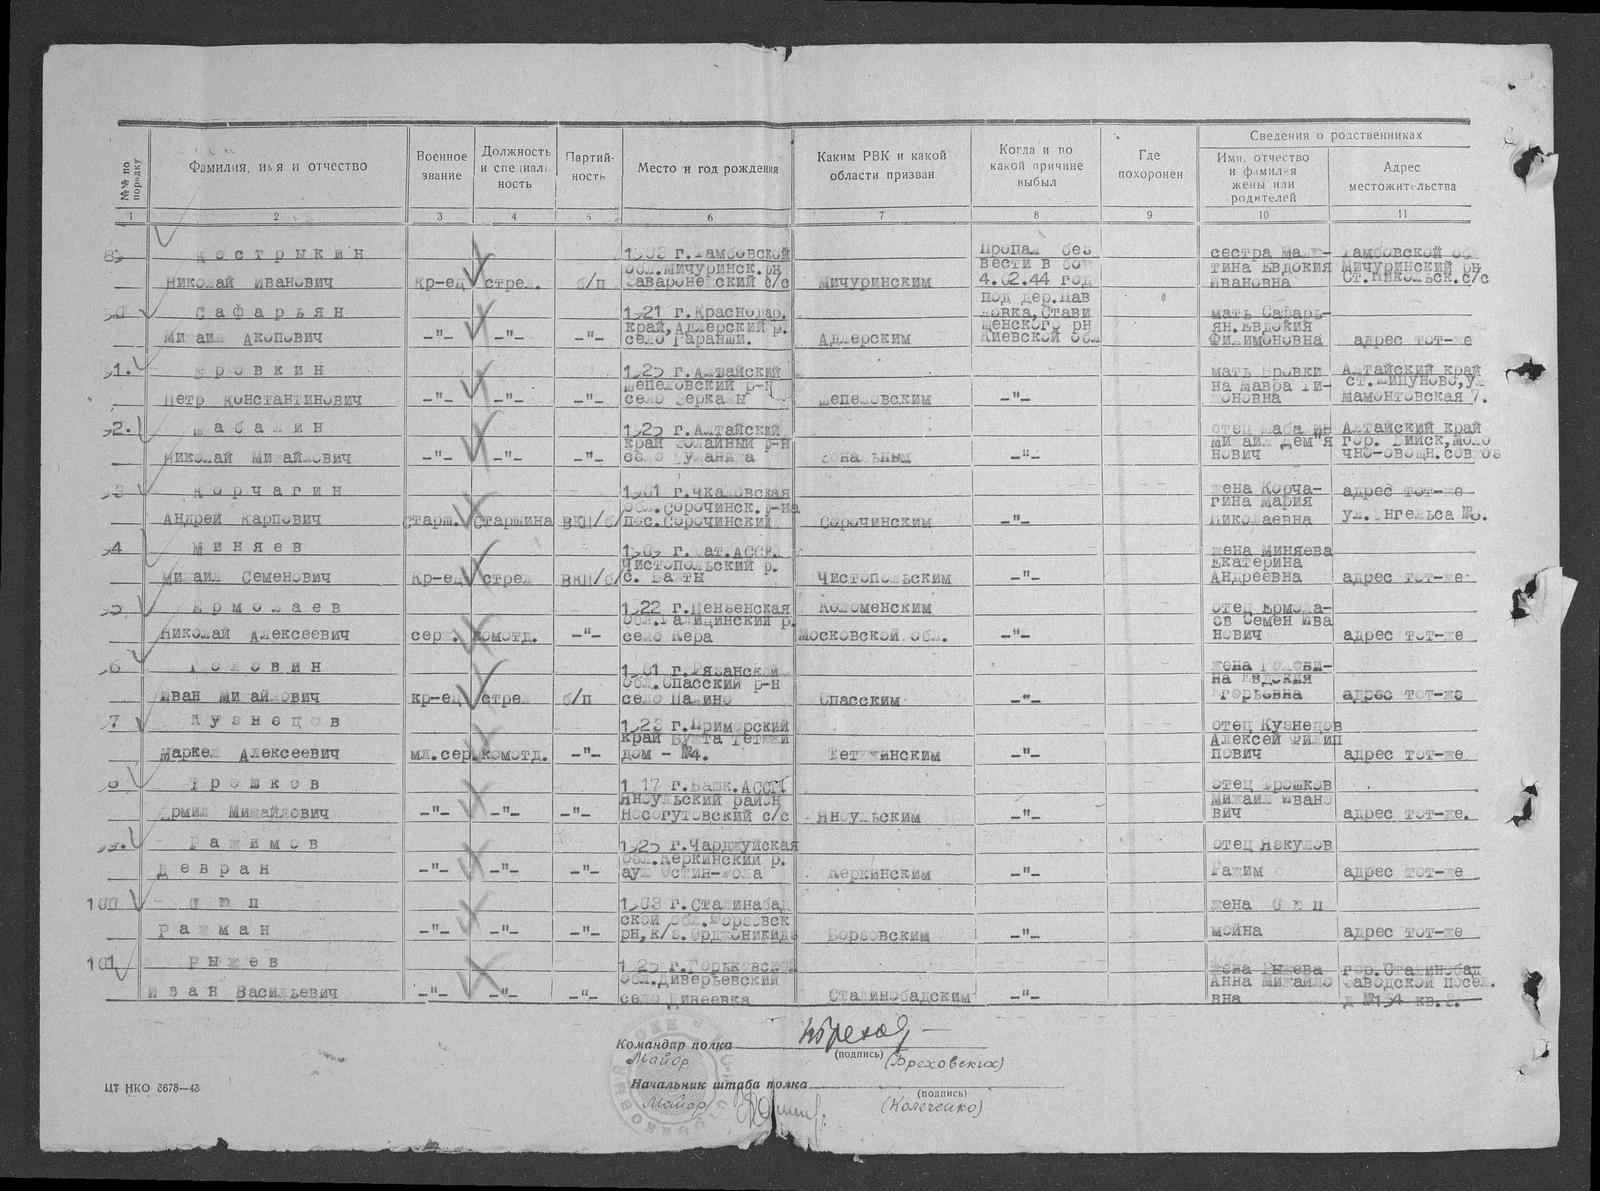 №№ по порядку
Фамилия, имя и отчество
Военное звание
Должность и специальность
Партийность
Место и год рождения
Каким РВК и какой области призван
Когда и по какой причине выбыл
Где похоронен
Сведения о родственниках
Имя, отчество и фамилия жены или родителей
Адрес местожительства
1 2 3 4 5 6 7 8 9 10 11
Кострыкин 1903 г.Тамбовской Пропал без сестра Тамбовской
обл.Мичуринск.рн вести в бою тина Евдокия Мичуринский рн
Николай Иванович кр-ец стрел. б/п с/с Мичуринским 4.02.44 год Ивановна Ст.Никольск.с/с
90 Сафарьян 1921 г.Краснодар. под дер.Пав мать Сафарь-
край,Адлерский р. ловка,Стави ян.Евдокия
Михаил Акопович -"- -"- -"- село Адлерским щенского рн Филимоновна адрес тот-же
Киевской обл
91. Бровкин 1925 г.Алтайский мать Бровки Алтайский край
Шепеловский р-н на Мавра Ти- ст.Шипуново,ул
Петр Константинович -"- -"- -"- село Зеркалы Шепеловским -"- хоновна Мамонтовская 7.
92. Шабалин 1925 г.Алтайский отец Шабалин Алтайский край
край р-н Михаил Дем"я гор. Бийск,Моло
Николай Михайлович -"- -"- -"- село Зональным -"- нович чно-овощн.совхоз
93 Корчагин 1901 г.Чкаловская жена Корча- адрес тот-же
обл.Сорочинск.р-на гина Мария
Андрей Карпович Старш. Старшина ВКП/б/ пос.Сорочинский Сорочинским -"- Николаевна ул.Энгельса
94 Миняев 1909 г.Тат.АССР. жена Миняева
Чистопольский р. Екатерина
Михаил Семенович кр-ец стрел ВКП/б/ с. Чистопольским -"- Андреевна адрес тот-же
95 Ермолаев 1922 г.Пензенская Коломенским отец Ермола-
обл.Галицинский р. ев Семен Ива
Николай Алексеевич серж. комотд. -"- село Кера Московской обл. -"- нович адрес тот-же
96 Головин 1901 г.Рязанской жена Голови-
обл.Спасский р-н на Евдокия
Иван Михайлович кр-ец стрел б/п село Спасским -"- Егорьевна адрес тот-же
97 Кузнецов 1923 г.Приморский отец Кузнецов
край Бухта Тетюхи Алексей Филип
Маркел Алексеевич мл.сер. комотд. -"- дом - №4. Тетюхинским -"- пович адрес тот-же
98 Трошков г.Башк.АССР отец Трошков
Янаульский район Михаил Ивано
Ермил Михайлович -"- -"- -"- с/с Янаульским -"- вич адрес тот-же.
99. Ражимов 1925 г.Чарджуйская отец Якулов
обл.Керкинский р.
Девран -"- -"- -"- аул Керкинским -"- Ражим адрес тот-же
100 Оюп 1908 г.Сталинабад жена Оюп
ской обл.
Ражман -"- -"- -"- рн,к/з.Орджоникидз -"- мойна адрес тот-же
101 Рыжев 1925 г.Горьковской жена Рыжева гор.Сталинобад
обл.Диверьевский Анна Михайло Заводской посел.
Иван Васильевич -"- -"- -"- село Дивеевка Сталинобадским -"- вна д №154 кв.
Командир полка
Майор
(подпись)
(Бреховских)
Начальник штаба полка
Майор
(подпись)
(Колеченко)
ЦТ НКО 3678—43